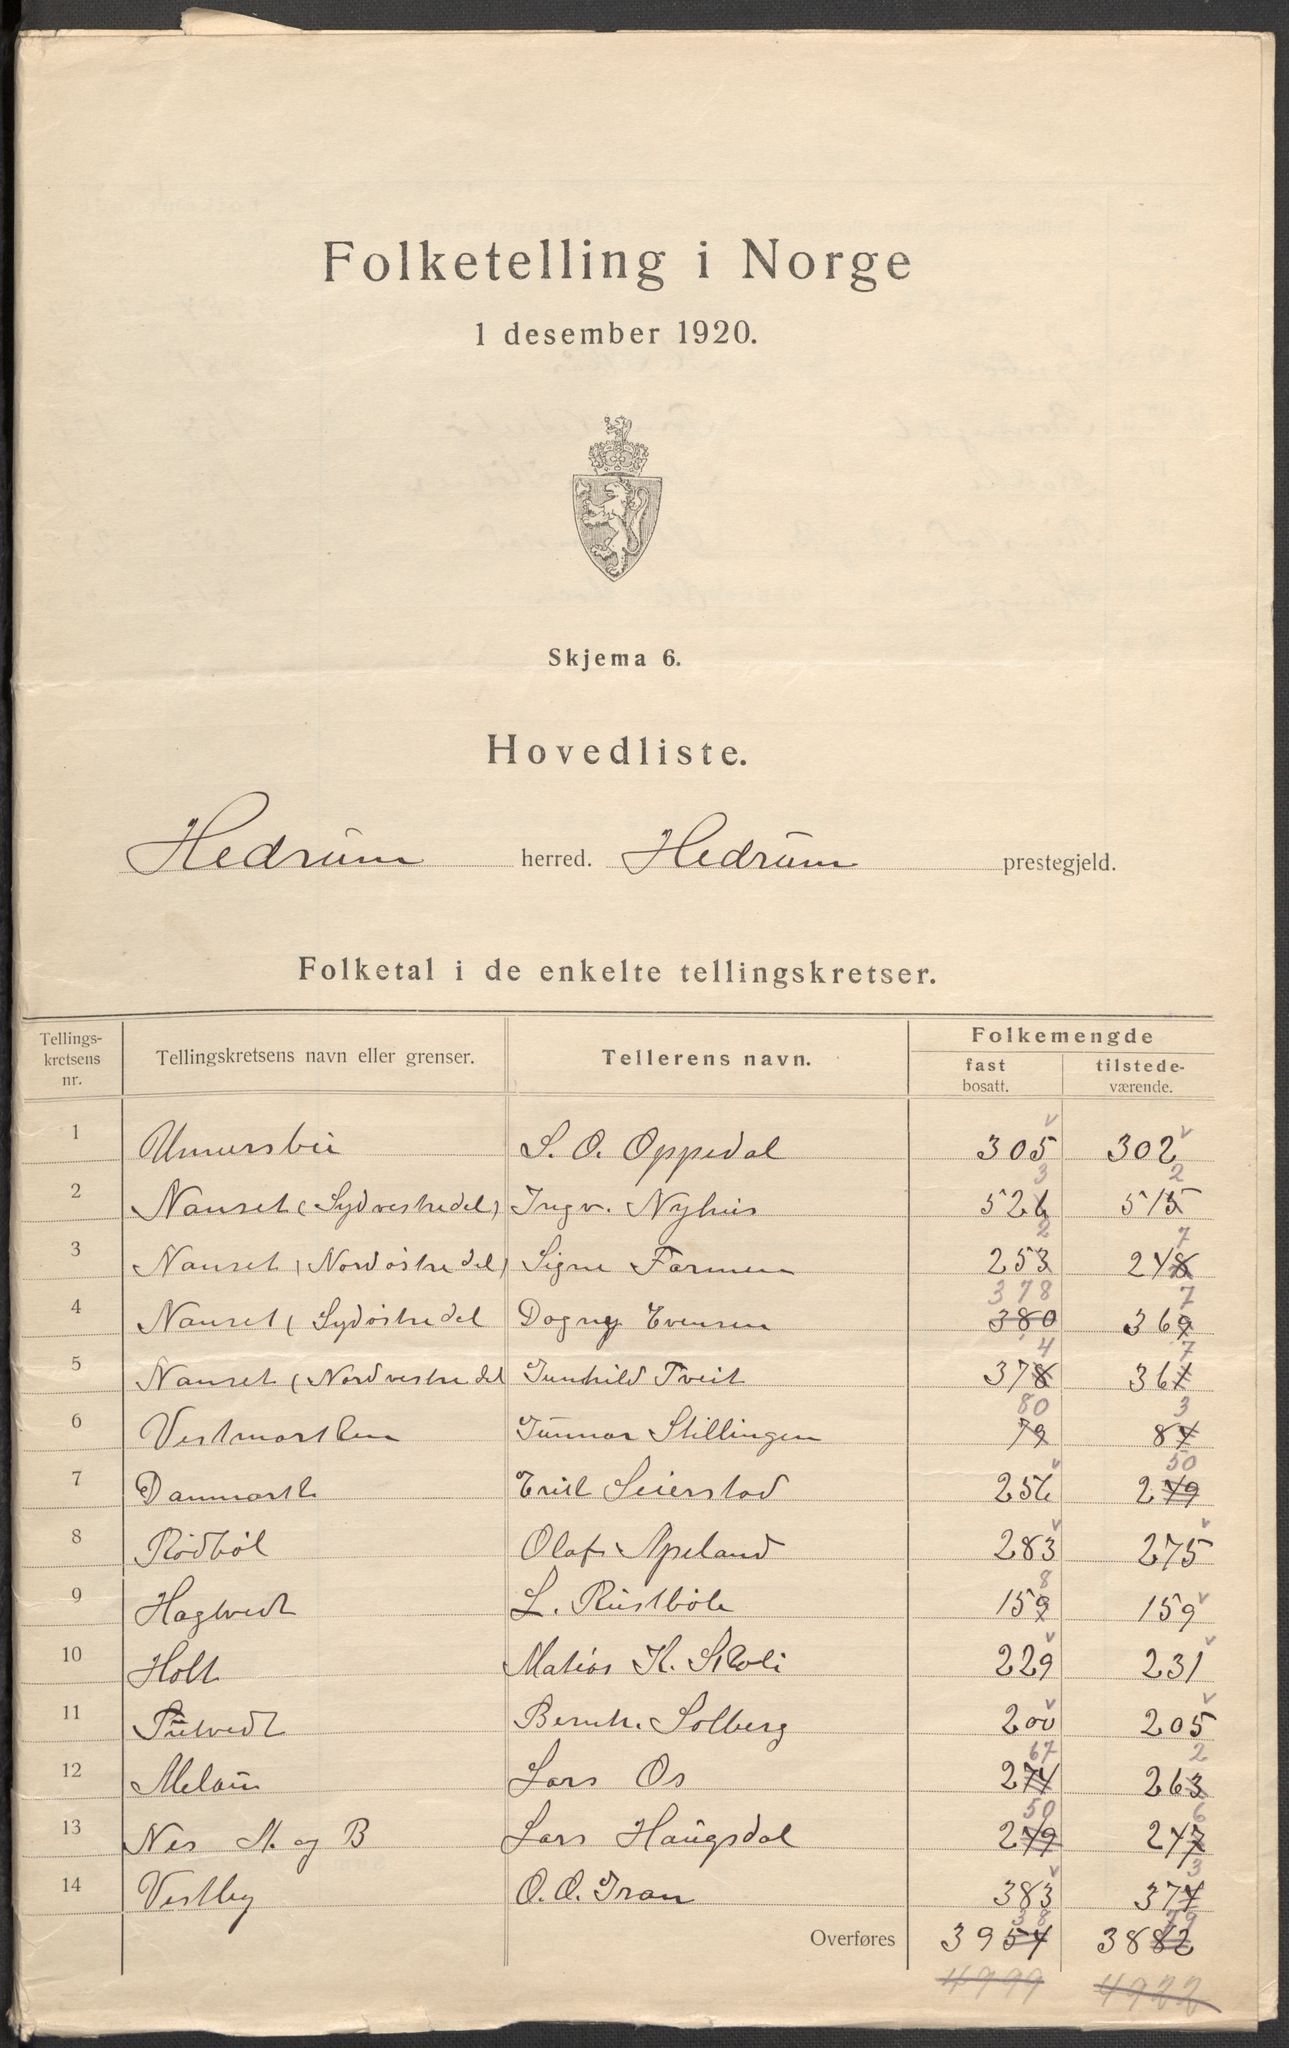 Folketelling i Norge
1 desember 1920.
Skjema 6.
Hovedliste.
Hedrum herred. Hedrum prestegjeld.
Folketal i de enkelte tellingskretser.
Tellings-kretsens nr. Tellingskretsens navn eller grenser. Tellerens navn. Folkemengde
fast bosatt. tilstede-værende.
1 S. O. Oppedal 305 v 302 v
2 Nanset (Sydvestre del) Ingv. Nyhus 526 3 515 2
3 Nanset (Nordøstre del) Signe Farmen 253 2 248 7
4 Nanset (Sydøstre del Dagny Evensen 380 378 369 7
5 Nanset (Nordvestre del Gunhild Tveit 378 4 361 7
6 Vestmarken Gunnar Stillingen 79 80 84 3
7 Danmark Erik Seierstad 256 v 249 50
8 Rødbøl Olaf Apeland 283 275 v
9 Hagtvedt L. Rustbøle 159 8 159 v
10 Holt Matias K. Skoli 229 v 231 v
11 Tutvedt Bernh. Solberg 200 v 205 v
12 Melau Lars Os 274 67 263 2
13 Nes A. og B Lars Haugsdal 249 50 247 6
14 Vestby O. O. Tran 383 v 374 3
Overføres 3954 38 3882 79
4799 4922